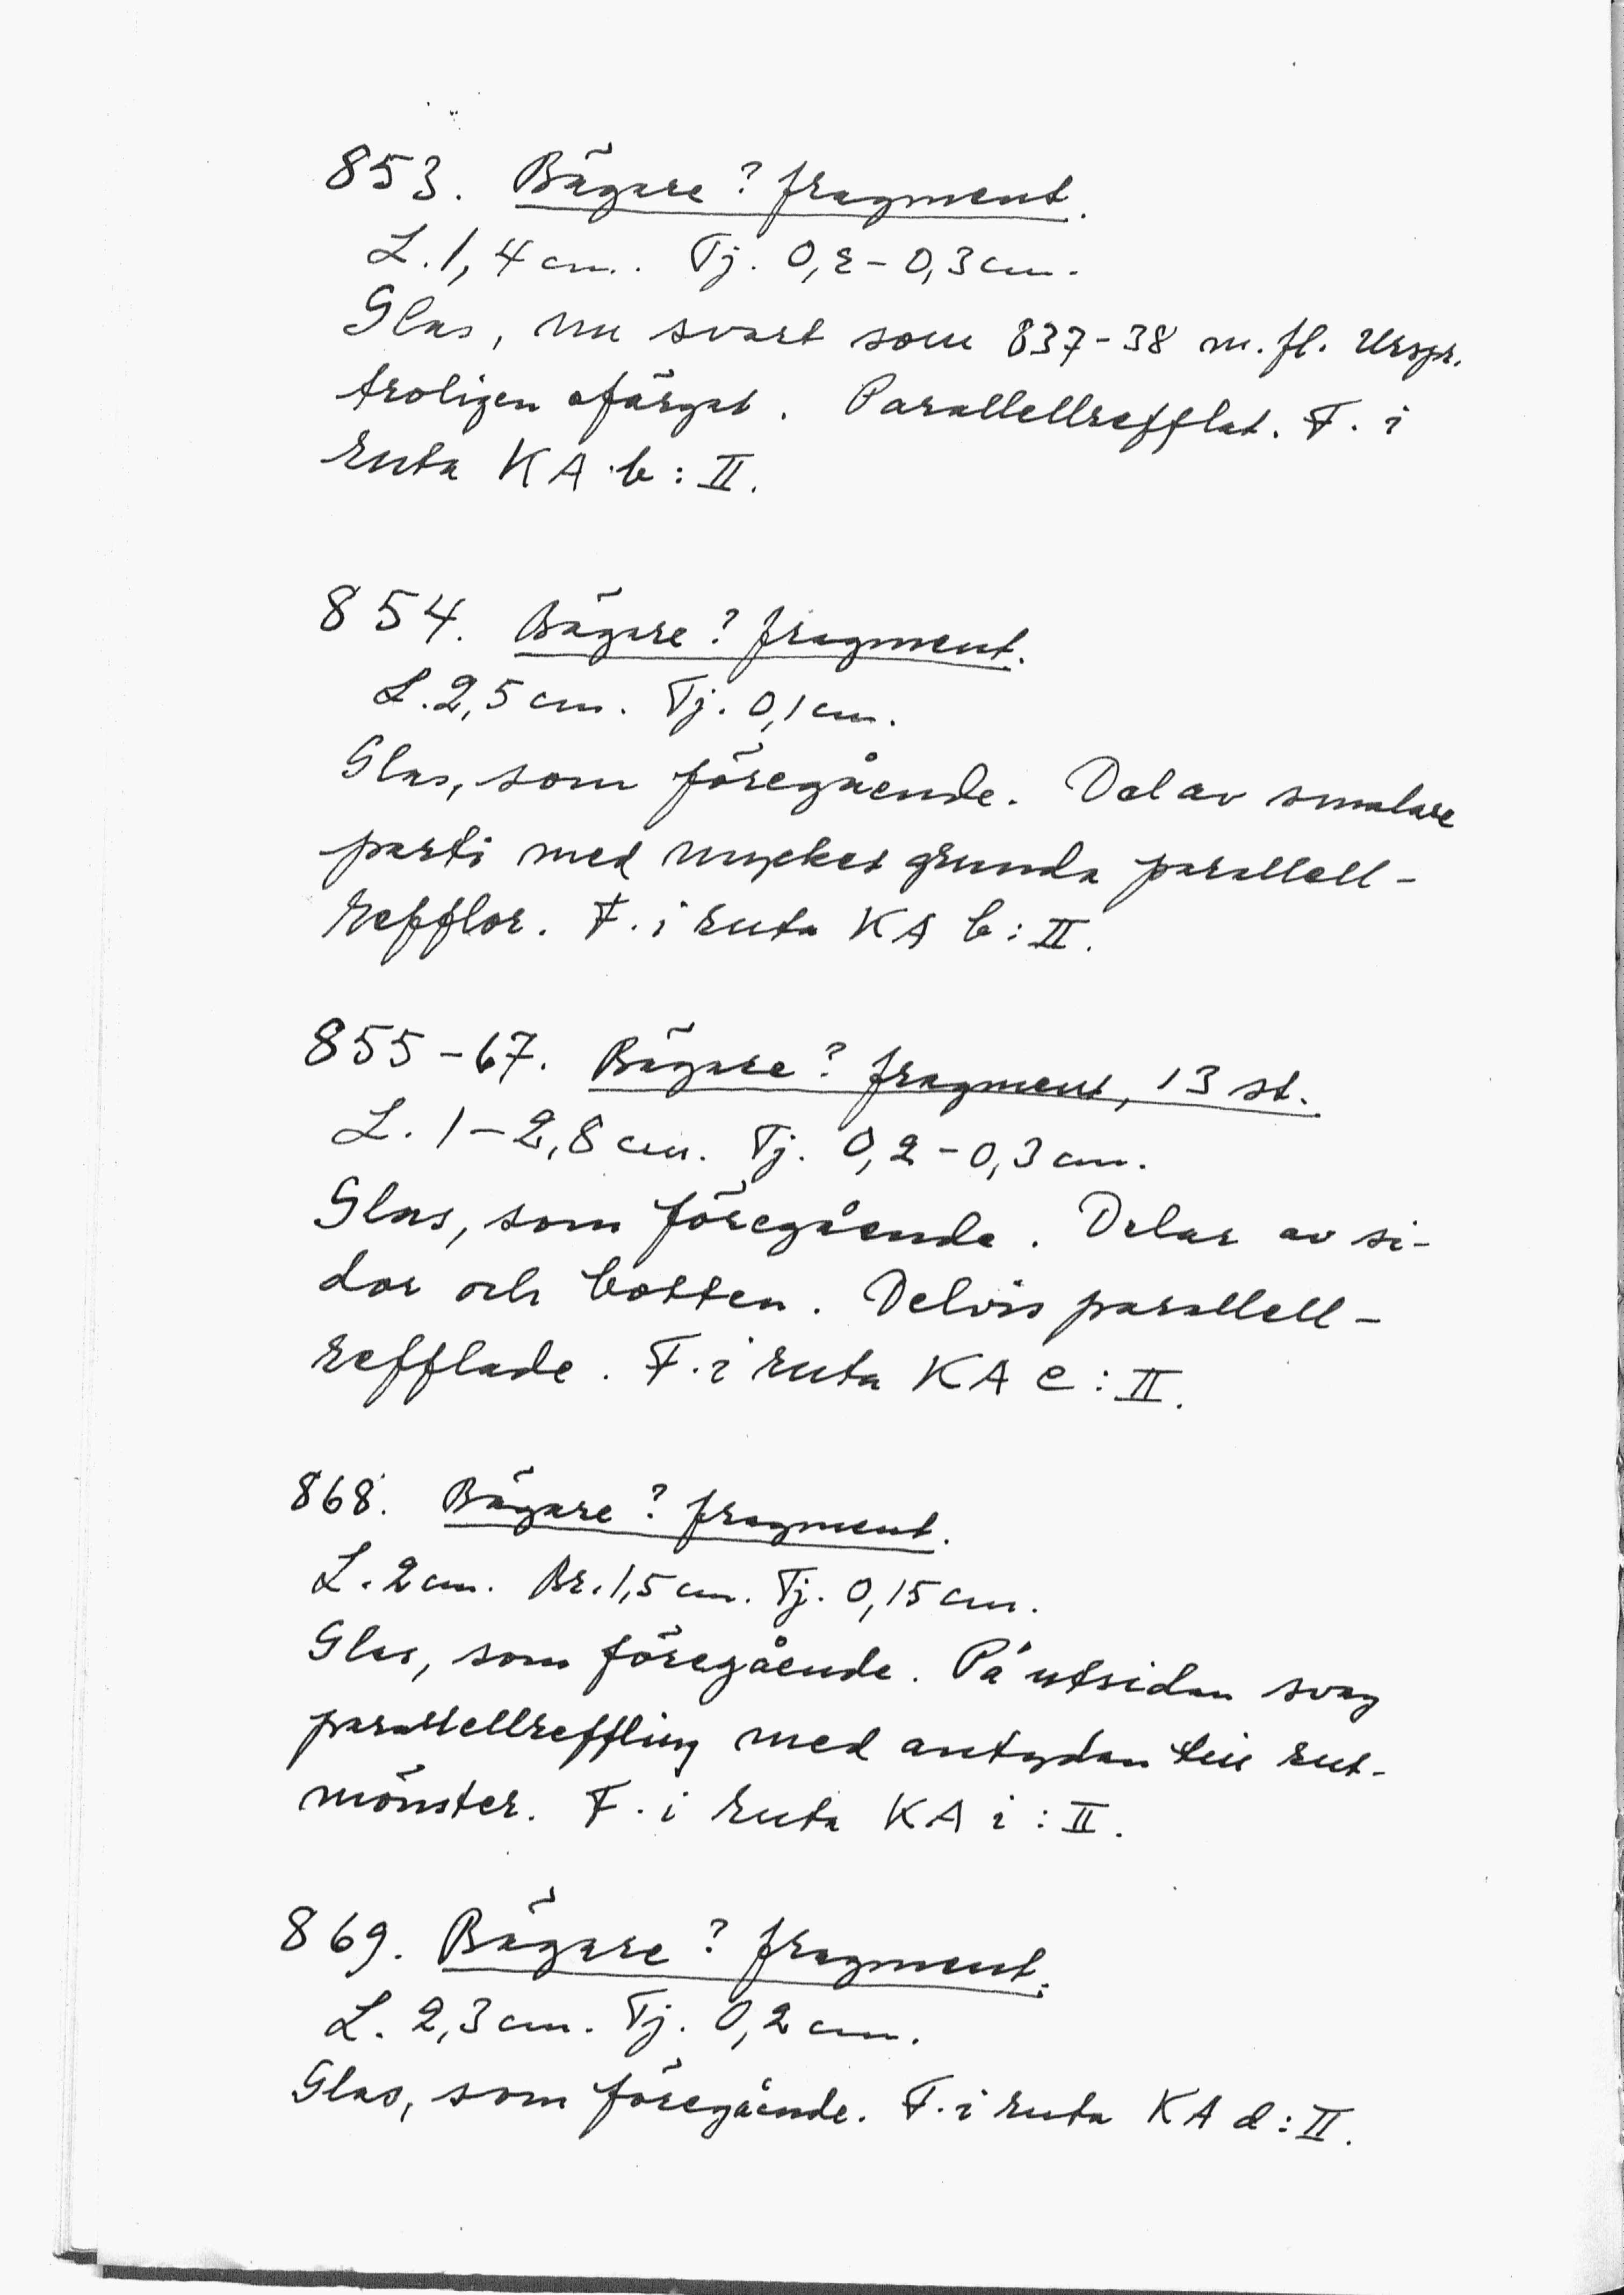 853. Bägare? fragment.
L. 1,4 cm. Tj. 0,2-0,3 cm.
Glas, nu svart som 837-38 m. fl. Urspr.
troligen ofärgat. Parallellrefflat. F. i
ruta KA b: II.
854. Bägare? fragment.
L. 2,5 cm. Tj. 0,1 cm.
Glas, som föregående. Del av smalare
parti med mycket grunda parallell-
refflor. F. i ruta KA b: II.
855-67. Bägare? fragment, 13 st.
L. 1-2,8 cm. Tj. 0,2-0,3 cm.
Glas, som föregående. Delar av si-
dor och botten. Delvis parallell-
refflade. F. i ruta KA e: II.
868. Bägare? fragment.
L. 2 cm. Br. 1,5 cm. Tj. 0,15 cm.
Glas, som föregående. På utsidan svag
parallellreffling med antydan till rut-
mönster. F. i ruta KA i: II.
869. Bägare? fragment.
L. 2,3 cm. Tj. 0,2 cm.
Glas, som föregående. F. i ruta KA d: II.